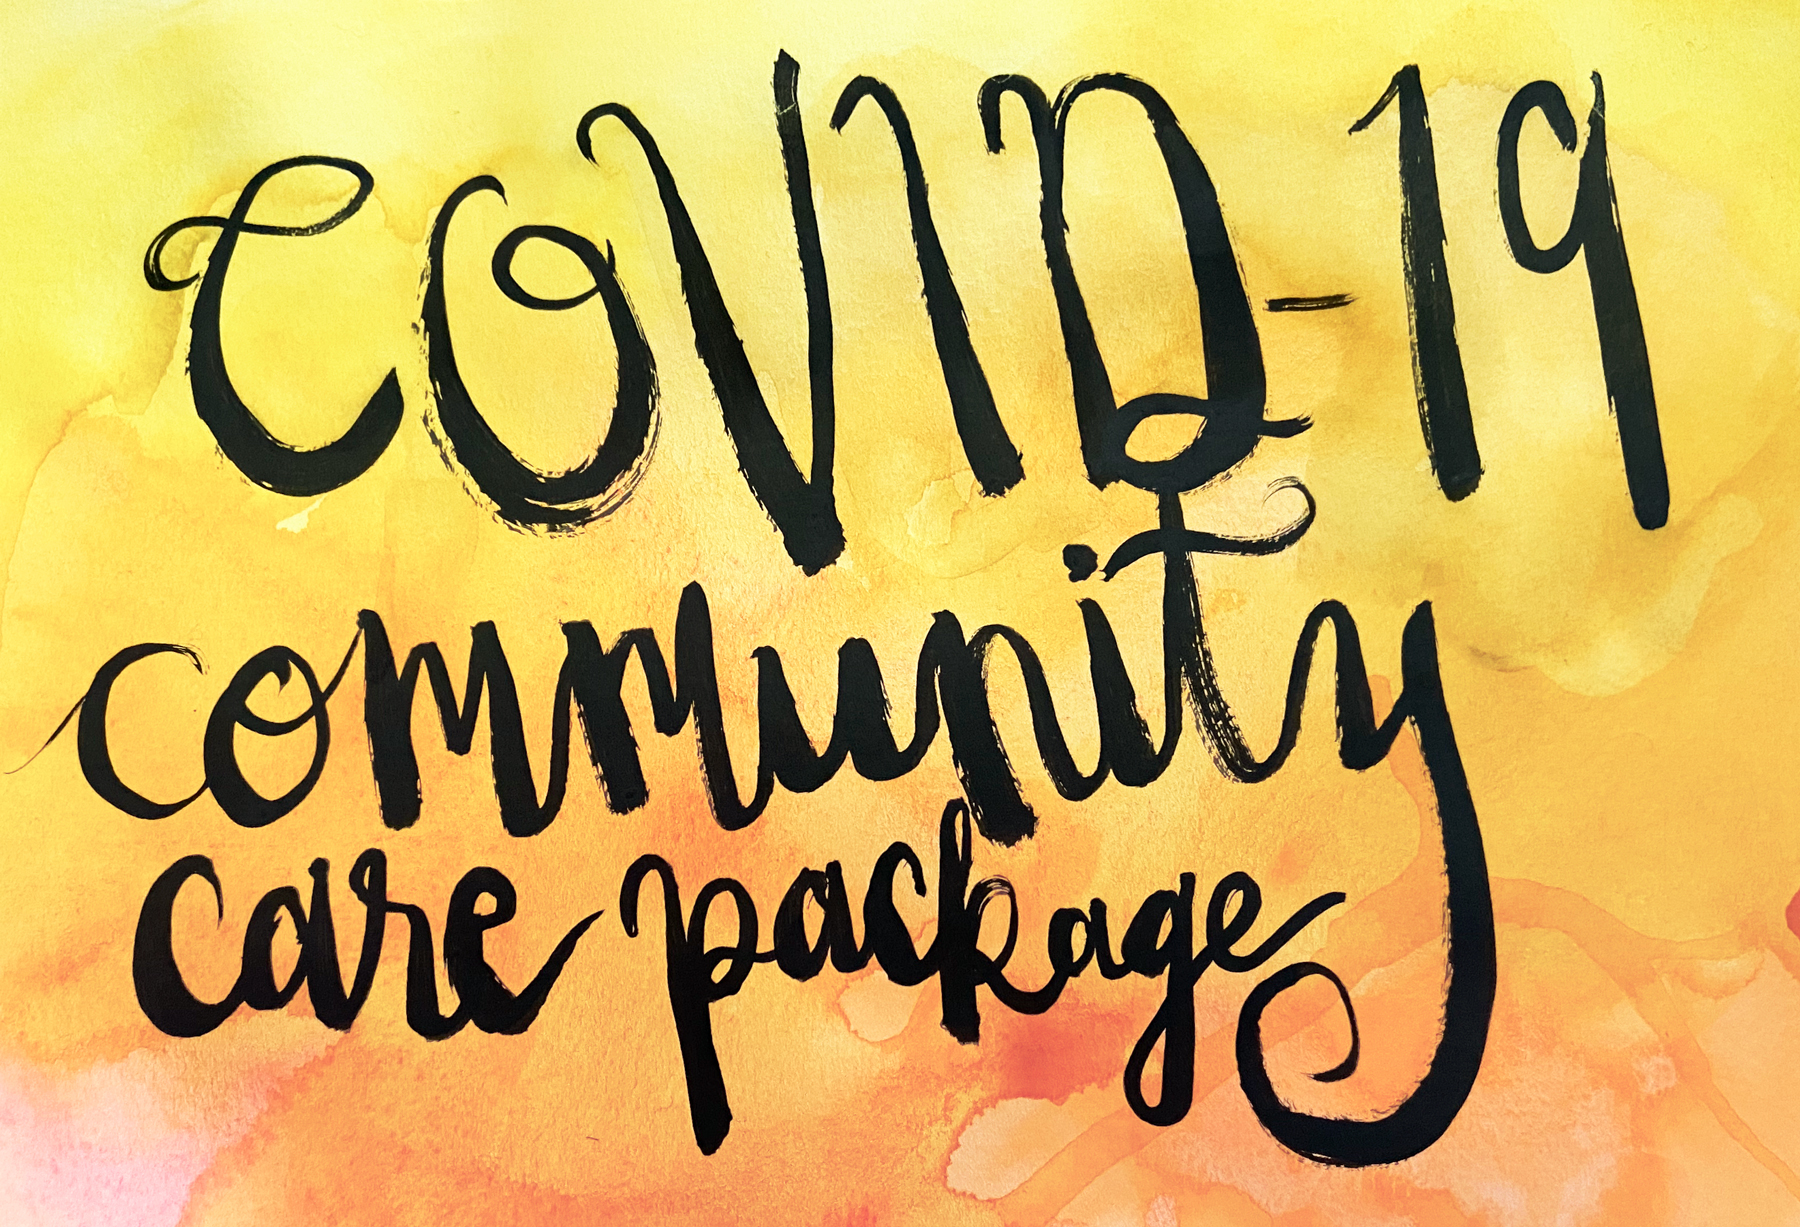 COVID-19
community
care package